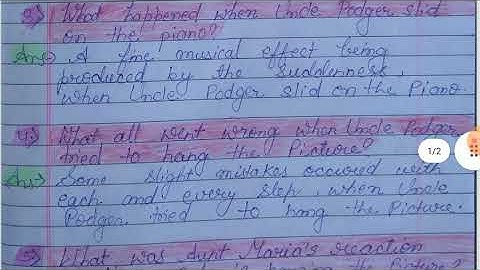 3) What happened when Uncle Podger slid
on the piano?
Ans:→ A fine musical effect being
produced by the suddenness,
when Uncle Podger slid on the Piano.
4) What all went wrong when Uncle Podger
tried to hang the Picture?
Ans:→ Some slight mistakes occured with
each and every step, when Uncle
Podger tried to hang the Picture.
5) What was Aunt Maria's reaction
1/2